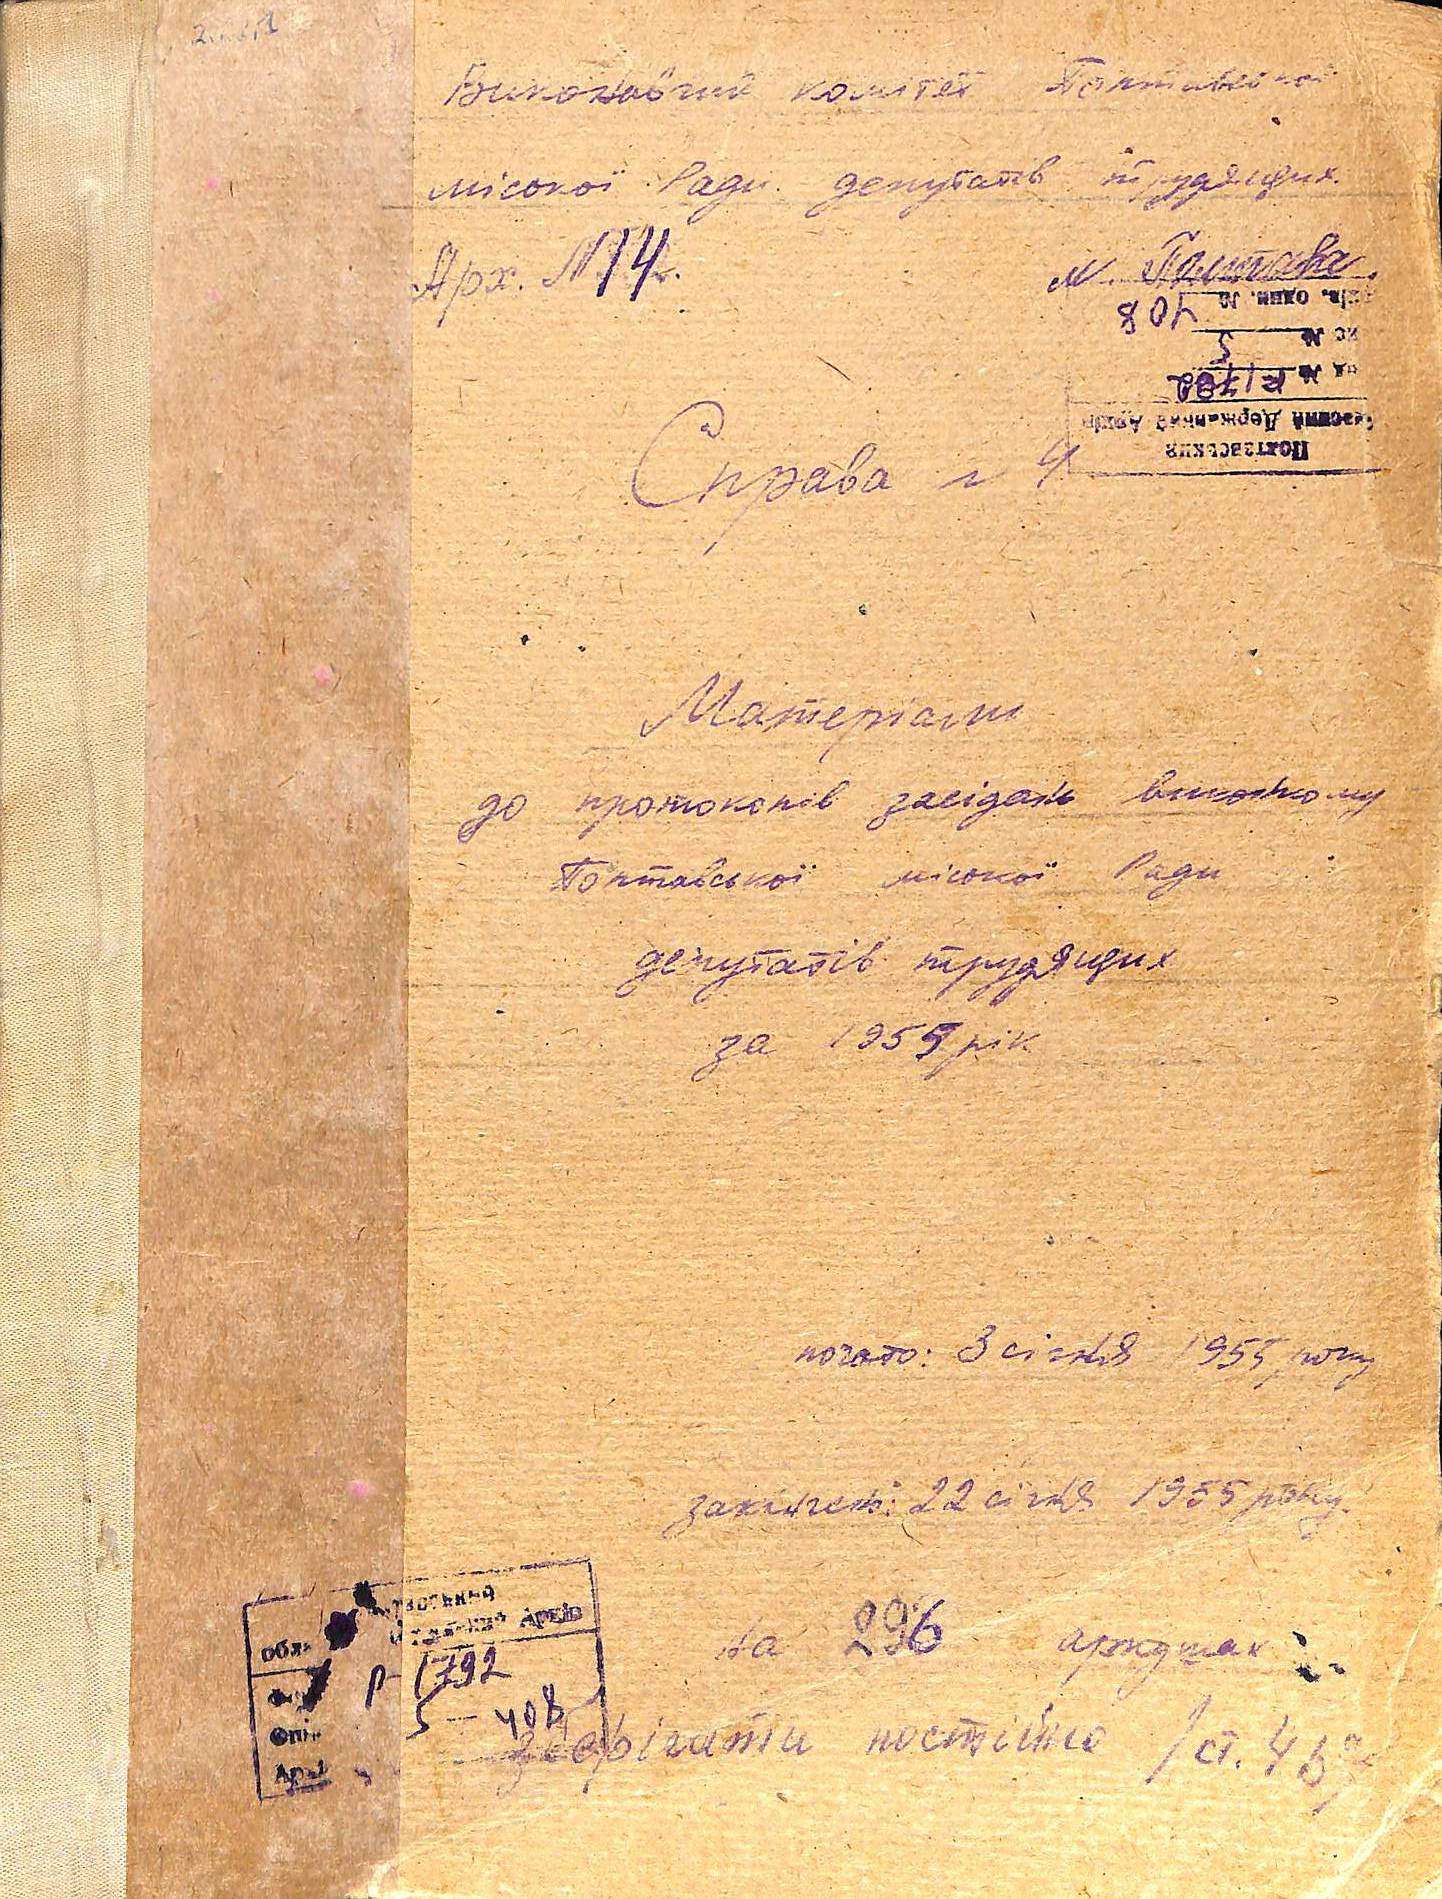 Виконавчий комітет Полтавської
міської Ради депутатів трудящих
Арх. №14.
м. Полтава
одини. № 408
№ 5
№ Р1792
Державний Архів
Полтавський
Справа № 4
Матеріали
до протоколів засідань виконкому
Полтавської міської Ради
депутатів трудящих
за 1955 рік
почато: 3 січня 1955 року
закінчен: 22 січня 1955 року.
на 296 аркушах
Архів
Р-1792
5 - 408
зберігати постійно /ст. 4